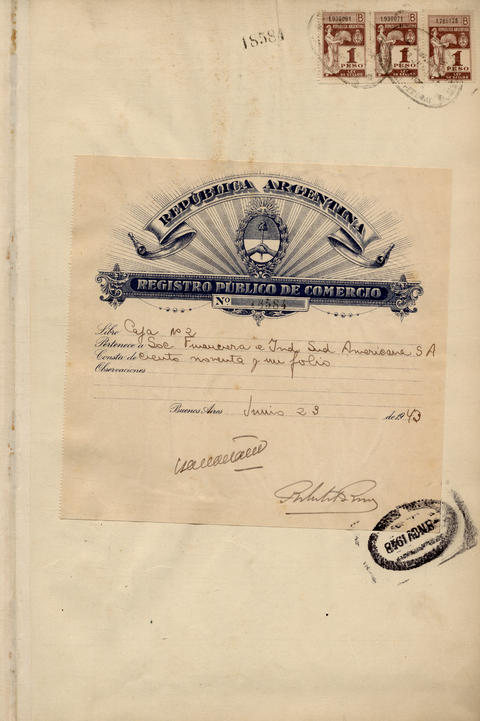 18584
1930091 B
1930071 B
B
REPUBLICA ARGENTINA
1
PESO
1
PESO
1
PESO
REPÚBLICA ARGENTINA
REGISTRO PÚBLICO DE COMERCIO
Nº 18584
Libro Caja nº 2
Pertenece a Soc Financiera e Ind. Sud Americana S A
Consta de ciento noventa y un folio
Observaciones
Buenos Aires Junio 23 de 1943